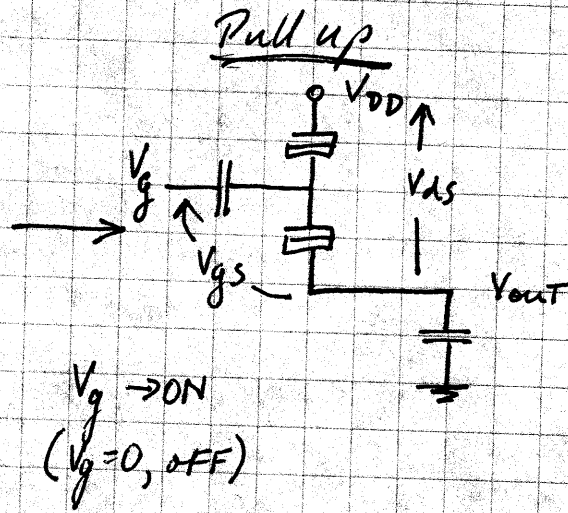 Pull up
V_DD
V_g
V_ds
V_gs
V_OUT
V_g → ON
(V_g = 0, OFF)